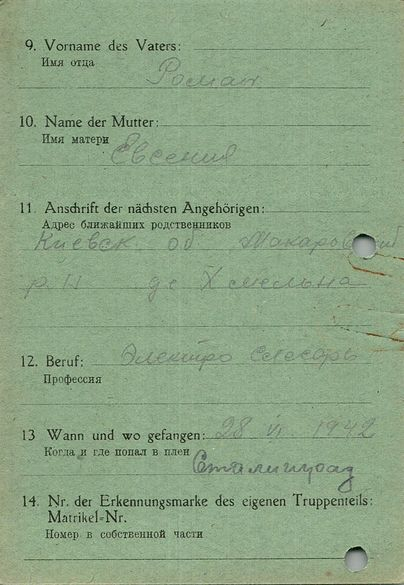 9. Vorname des Vaters:
Имя отца
Роман
10. Name der Mutter:
Имя матери
Евгения
11. Anschrift der nächsten Angehörigen:
Адрес ближайших родственников
Киевск об Макаровский
р. де Хмельна
12. Beruf: Электро слесарь
Профессия
13 Wann und wo gefangen: 28 VI 1942
Когда и где попал в плен
Сталинград
14. Nr. der Erkennungsmarke des eigenen Truppenteils:
Matrikel-Nr.
Номер в собственной части